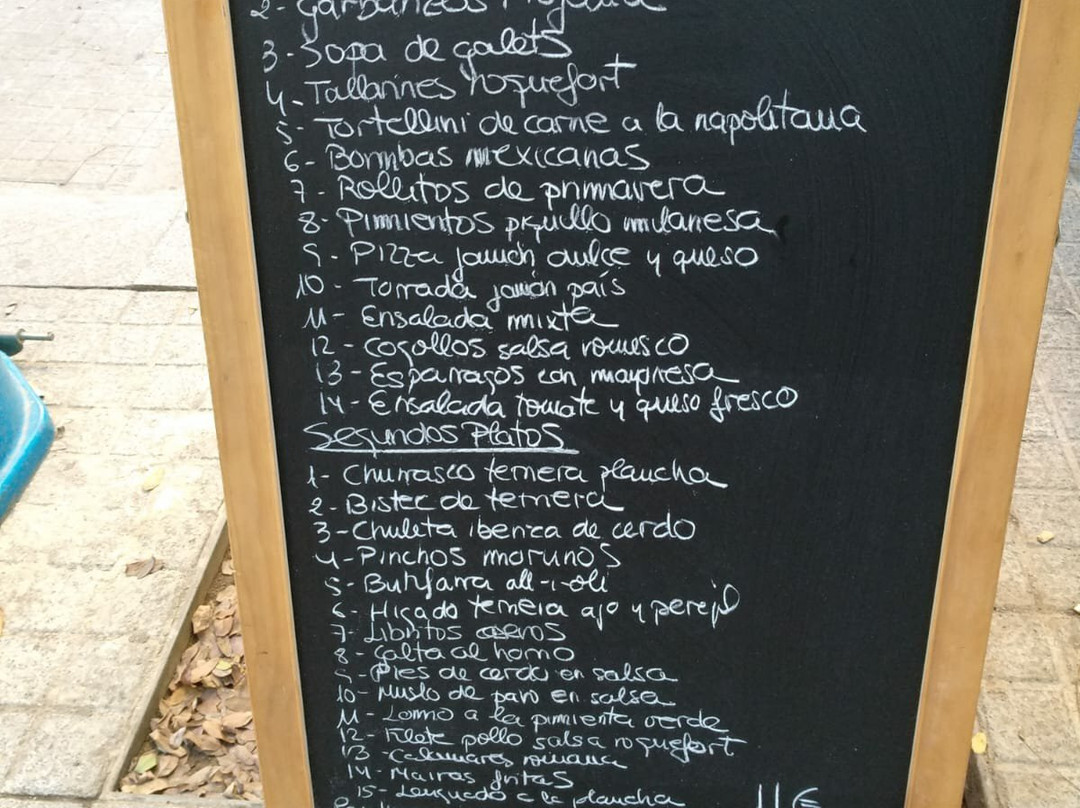 2- Garbanzos riojana
3- Sopa de galets
4- Tallarines roquefort
5- Tortellini de carne a la napolitana
6- Bombas mexicanas
7- Rollitos de primavera
8- Pimientos piquillo milanesa
9- Pizza jamón dulce y queso
10- Torrada jamón país
11- Ensalada mixta
12- Cogollos salsa romesco
13- Esparragos con mayonesa
14- Ensalada tomate y queso fresco
Segundos Platos
1- Churrasco ternera plancha
2- Bistec de ternera
3- Chuleta iberica de cerdo
4- Pinchos morunos
5- Butifarra all-i-oli
6- Higado ternera ajo y perejil
7- Libritos caseros
8- Galta al horno
9- Pies de cerdo en salsa
10- Muslo de pavo en salsa
11- Lomo a la pimienta verde
12- Filete pollo salsa roquefort
13- Calamares romana
14- Mairas fritas
15- Lenguado a la plancha
11€